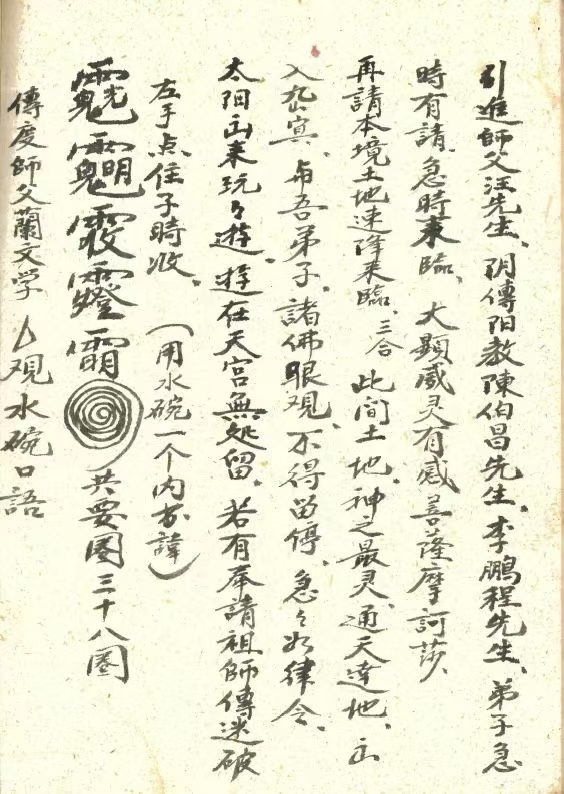 引進師父汪先生、阴傳阳教陳伯昌先生、李鵬程先生、弟子急
時有請、急時来臨、大顯威灵有感、菩薩摩訶莎、
再請本境土地速降来臨、三合 此间土地、神之最灵、通天達地、出
入幽冥、与吾弟子、諸佛眼观、不得留停、急々如律令、
太阳出来玩々遊、遊在天宫無処留、若有奉請祖師傳迷破
左手点住子時收、（用水碗一个内书諱）
共要圈三十八圈
傳度師父蘭文学 观水碗口語